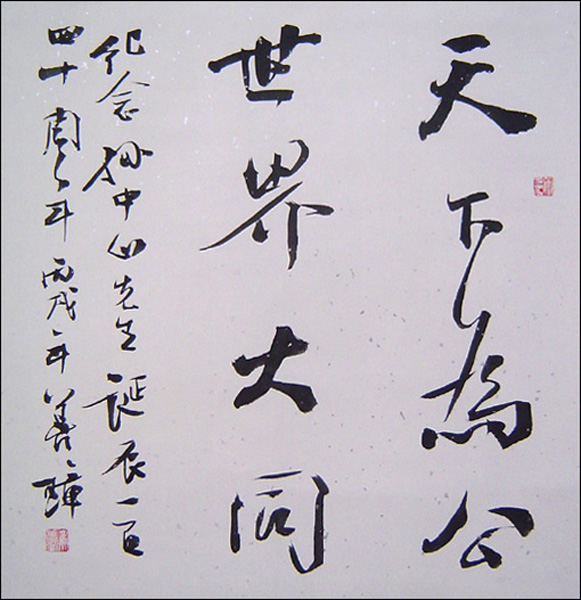 天下為公
世界大同
纪念孙中山先生誕辰一百
四十周年丙戌年善璋